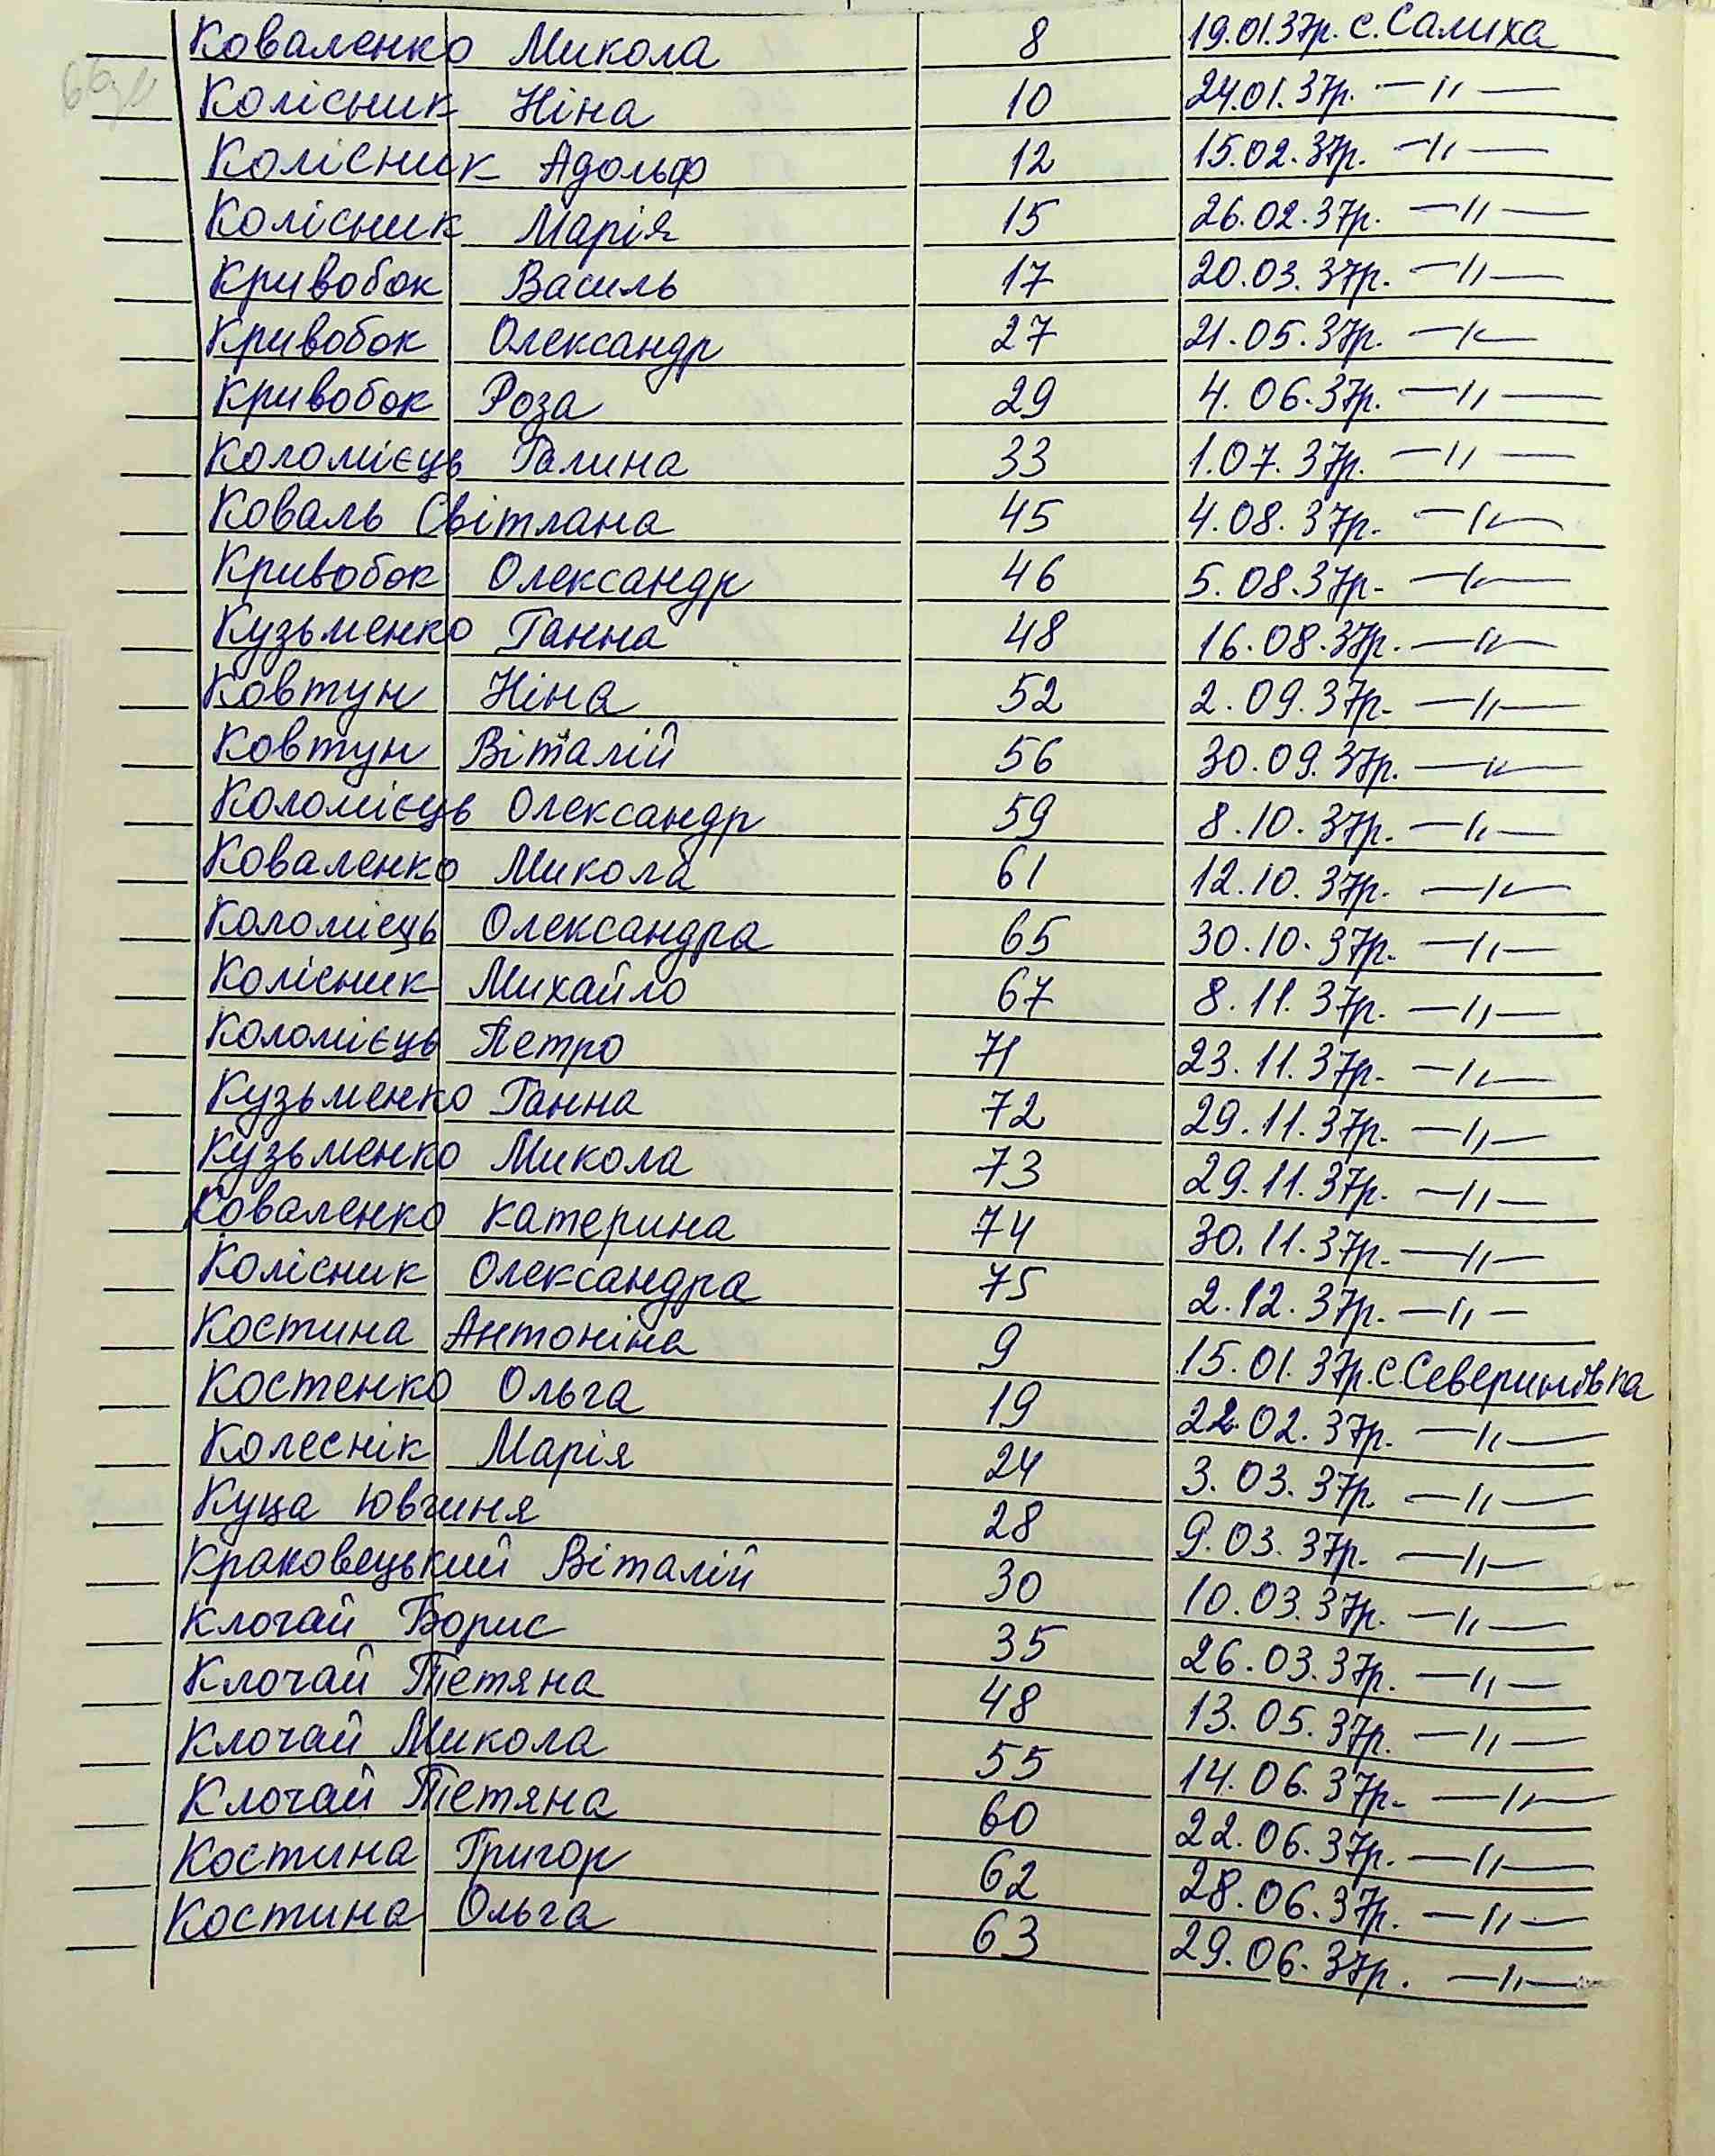 Коваленко Микола 8 19.01.37р. с. Салиха
Колісник Ніна 10 24.01.37р. —〃—
Колісник Адольф 12 15.02.37р. —〃—
Колісник Марія 15 26.02.37р. —〃—
Кривобок Василь 17 20.03.37р. —〃—
Кривобок Олександр 27 21.05.37р. —〃—
Кривобок Роза 29 4.06.37р. —〃—
Коломієць Галина 33 1.07.37р. —〃—
Коваль Світлана 45 4.08.37р. —〃—
Кривобок Олександр 46 5.08.37р. —〃—
Кузьменко Ганна 48 16.08.37р. —〃—
Ковтун Ніна 52 2.09.37р. —〃—
Ковтун Віталій 56 30.09.37р. —〃—
Коломієць Олександр 59 8.10.37р. —〃—
Коваленко Микола 61 12.10.37р. —〃—
Коломієць Олександра 65 30.10.37р. —〃—
Колісник Михайло 67 8.11.37р. —〃—
Коломієць Петро 71 23.11.37р. —〃—
Кузьменко Ганна 72 29.11.37р. —〃—
Кузьменко Микола 73 29.11.37р. —〃—
Коваленко Катерина 74 30.11.37р. —〃—
Колісник Олександра 75 2.12.37р. —〃—
Костина Антоніна 9 15.01.37р. с. Северинівка
Костенко Ольга 19 22.02.37р. —〃—
Колеснік Марія 24 3.03.37р. —〃—
Куца Ювгиня 28 9.03.37р. —〃—
Краковецький Віталій 30 10.03.37р. —〃—
Клочай Борис 35 26.03.37р. —〃—
Клочай Тетяна 48 13.05.37р. —〃—
Клочай Микола 55 14.06.37р. —〃—
Клочай Тетяна 60 22.06.37р. —〃—
Костина Григор 62 28.06.37р. —〃—
Костина Ольга 63 29.06.37р. —〃—